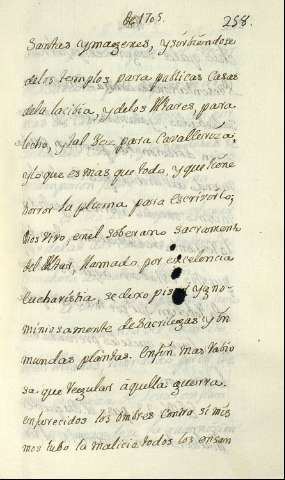 de 1705. 258.
Santas ymagenes, y sirviendose
de los templos para publicas Casas
de la lacibia, y de los Altares, para
lecho, y tal vez para Cavalleriza;
y lo que es mas que todo, y que tiene
horror la pluma para escrivirlo;
Dios vivo, en el soberano sacramento
del Altar, llamado por excelencia
eucharistia, se dexo pisar ygno-
miniosamente de sacrilegas y in
mundas plantas. Enfin mas rabio
sa. que regular aquella guerra.
enfurecidos los ombres contra si mis
mos tubo la malicia todos los ensan